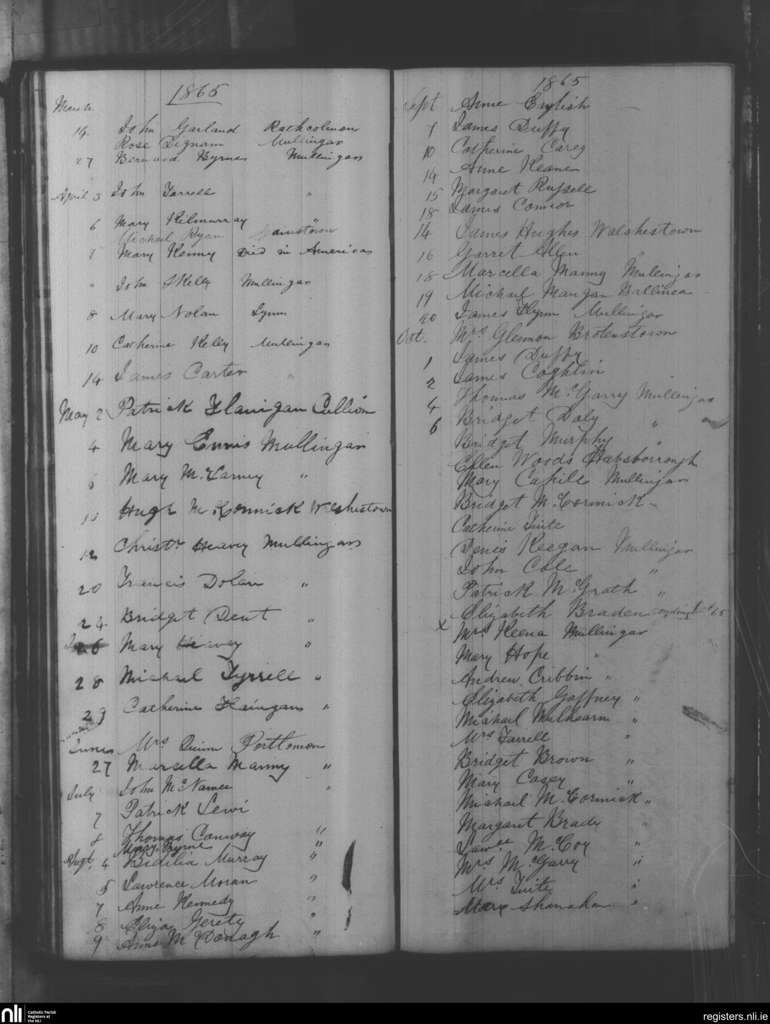 1865
March
14 John Garland Rathcolman
Rose Dignam Mullingar
27 Bernard Byrnes Mullingar
April 3 John Farrell "
6 Mary Kilmurray "
Michael Ryan
7 Mary Kenny Died in American
" John Skelly Mullingar
8 Mary Nolan Lynn
10 Catherine Kelly Mullingar
14 James Carter "
May 2 Patrick Flanigan Cullion
4 Mary Ennis Mullingar
6 Mary "
Hugh McKormick Walshestown
Christr Heavey Mullingar
20 Francis Dolan "
24 Bridget Dent "
26 Mary Heavey "
28 Michael Tyrrell "
29 Catherine Flanigan "
Mrs Quinn Portlomon
27 Marcella Manny "
July John McNamee "
7 Patrick Lewi
8 Thomas Conway "
Mary Byrne "
Augt. 4 Bidilia Murray "
5 Lawrence Moran "
7 Anne Kennedy "
8 Eliza Gerety "
9 Anne McDonagh "
1865
Sept Anne English
7 James Duffy
10 Catherine Carey
14 Anne Keane
15 Margaret Russell
18 James Connor
14 James Hughes Walshestown
16 Garret Allen
18 Marcella Manny Mullingar
19 Michael Mangan Ballinea
20 James Flynn Mullingar
Oct. Mrs Glennon Brotenstown
1 James Duffy
2 James Coghlin
4 Thomas McGarry Mullingar
6 Bridget Daly "
Bridget Murphy "
Ellen Woods
Mary Cahill Mullingar
Bridget McCormick
Catherine Tuite
Denis Keegan Mullingar
John Cole "
Patrick McGrath "
Elizabeth Braden
x Mrs Keena Mullingar
Mary Hope "
Andrew Cribbin "
Elizabeth Gaffney "
Michael Mulhearn "
Mrs Farrell "
Bridget Brown "
Mary Casey "
Michael McCormick "
Margaret Brady "
McCoy "
Mrs McGarry "
Mrs Tuite "
Mary Shanahan "
nli
Catholic Parish
Registers at
the NLI
registers.nli.ie